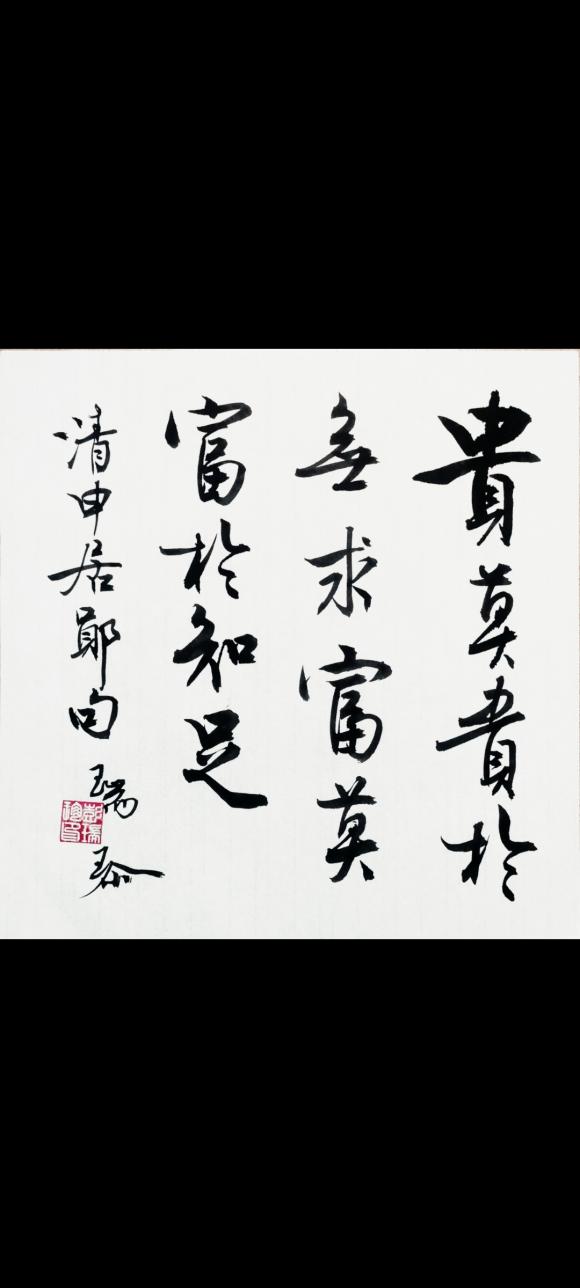 貴莫貴於
無求富莫
富於知足
清申居鄖句
瑞